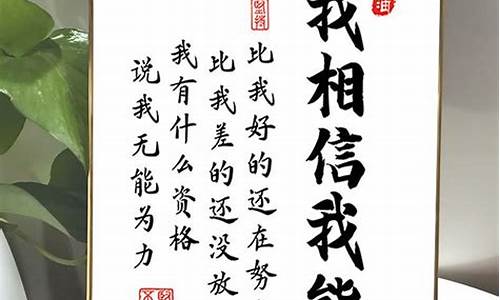 油
我相信我能
坚持
比我好的还在努
比我差的还没放
我有什么资格
说我无能为力